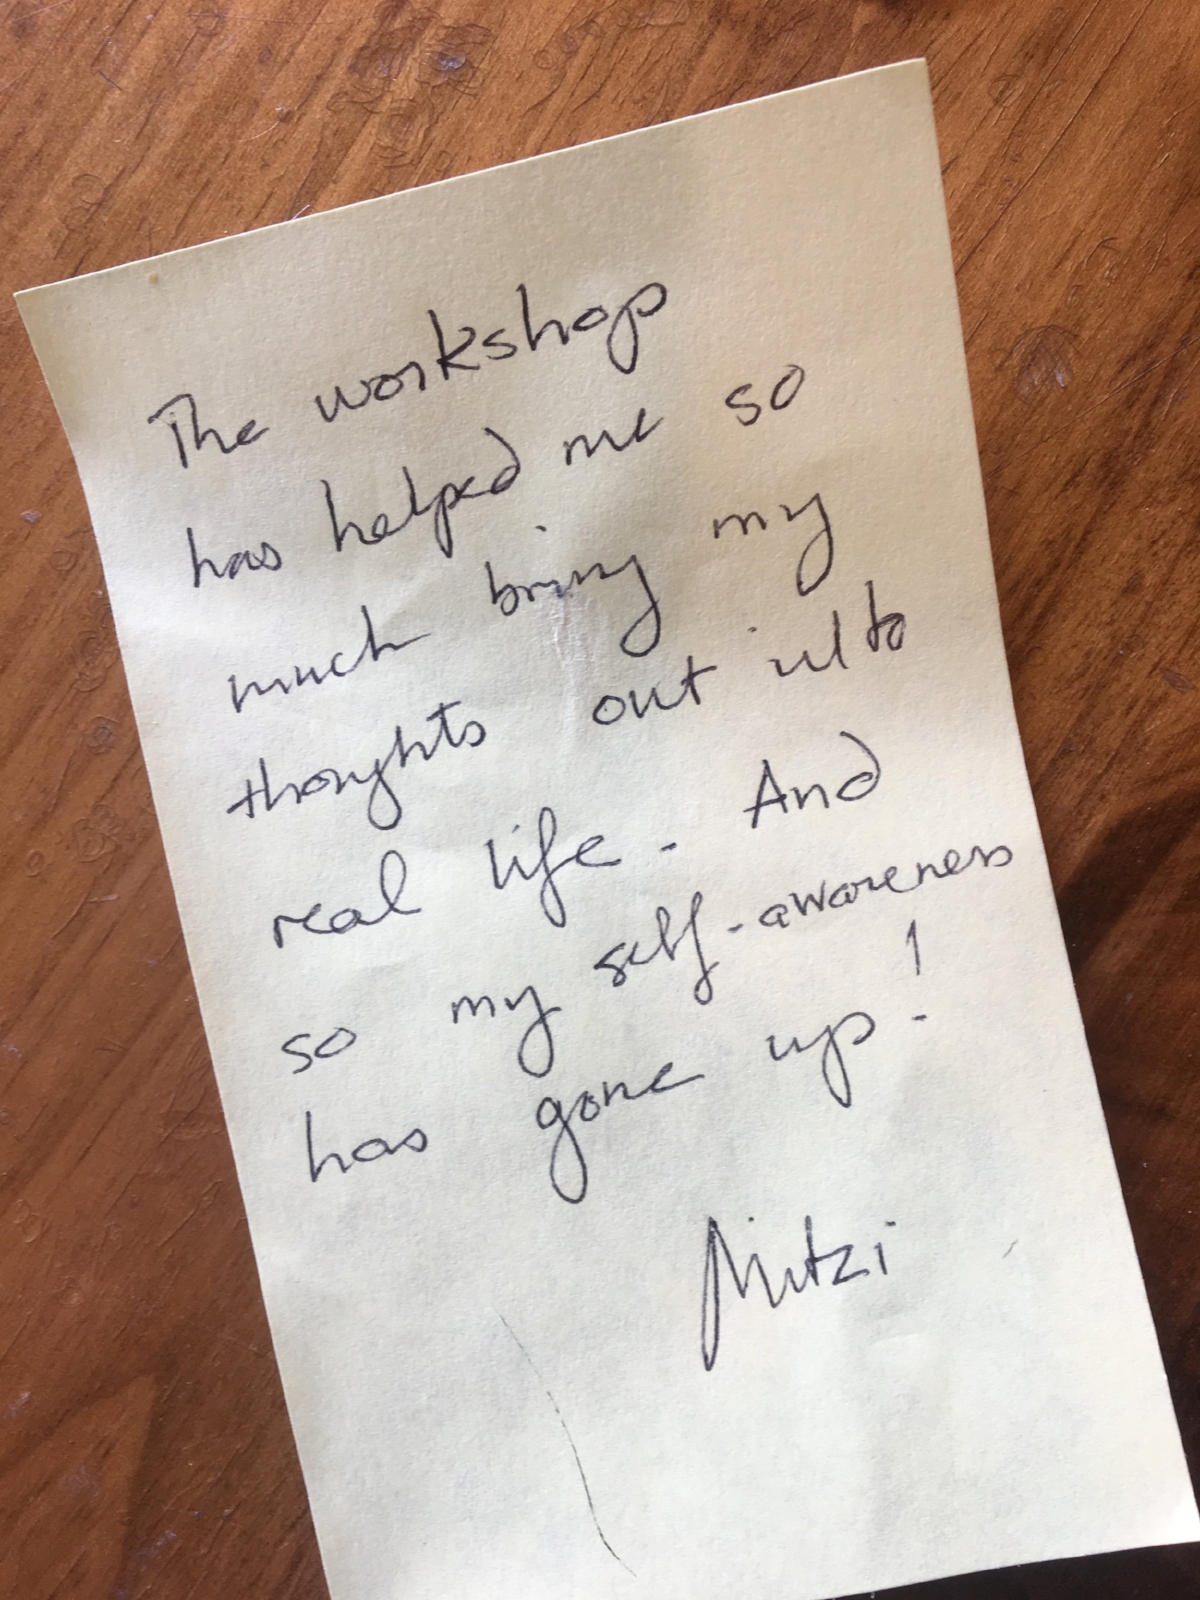 The workshop
has helped me so
much bring my
thoughts out into
real life. And
so my self-awareness
has gone up!
Mitzi